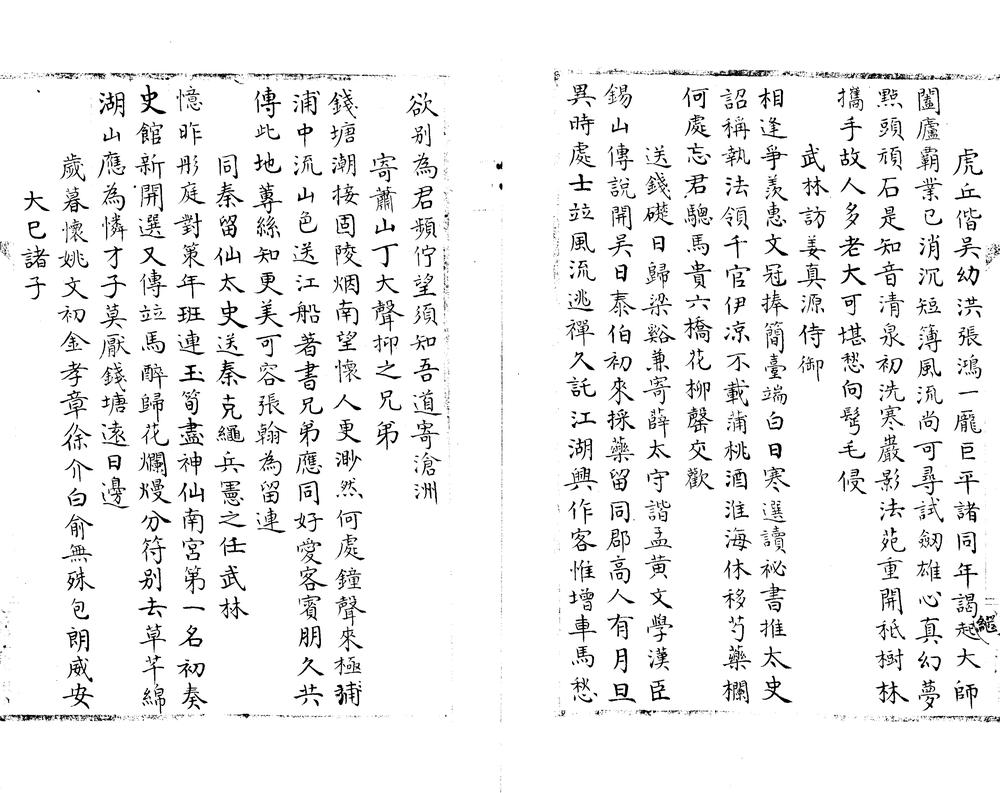 虎丘偕吳幼洪張鴻一龐巨平諸同年謁起大師
繼
闔廬霸業已消沉短簿風流尚可尋試劒雄心真幻夢
㸃頭頑石是知音清泉初洗寒巖影法苑重開秪樹林
攜手故人多老大可堪愁向鬂毛侵
武林訪姜真源侍御
相逢爭羨惠文冠捧簡臺端白日寒選讀祕書推太史
詔稱執法領千官伊凉不載蒲桃酒淮海休移芍藥欄
何處忘君驄馬貴六橋花柳罄交歡
送錢礎日歸梁谿兼寄薛太守諧孟黃文學漢臣
錫山傳說開吳日泰伯初來採藥留同郡高人有月旦
異時處士並風流逃禪久託江湖興作客惟增車馬愁
欲别為君頻佇望須知吾道寄滄洲
寄蕭山丁大聲抑之兄弟
錢塘潮接固陵烟南望懷人更渺然何處鐘聲來極浦
浦中流山色送江船著書兄弟應同好愛客賓朋久共
傳此地蓴絲知更美可容張翰為留連
同秦留仙太史送秦克繩兵憲之任武林
憶昨彤庭對策年班連玉筍盡神仙南宮第一名初奏
史館新開選又傳並馬醉歸花爛熳分符别去草芊綿
湖山應為憐才子莫厭錢塘遠日邊
歲暮懷姚文初金孝章徐介白俞無殊包朗威安
大巳諸子